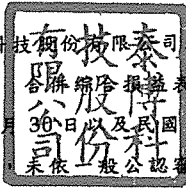 技股份有限公司
合併綜合損益表
月30日以及民國
未依一般公認審
泰博科
技股份
有限公司